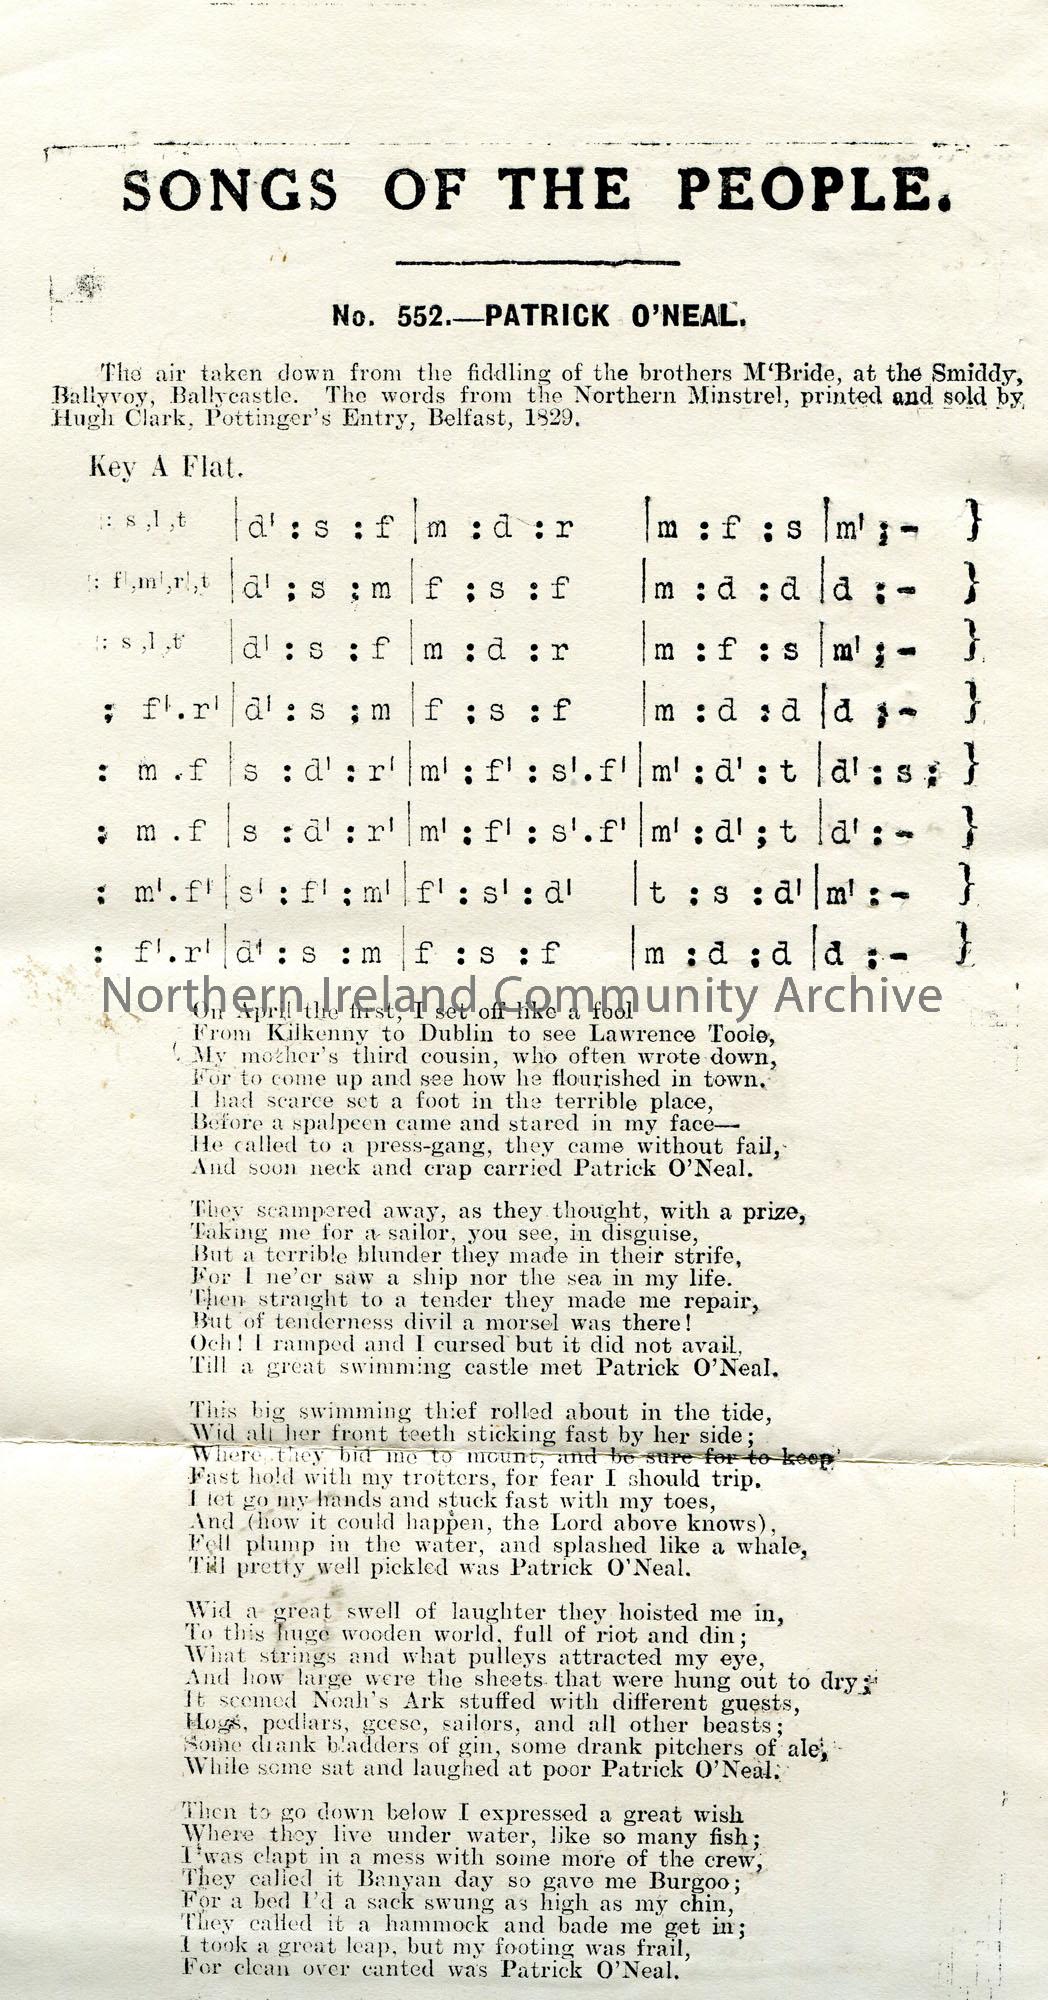 SONGS OF THE PEOPLE.
No. 552.—PATRICK O'NEAL.
The air taken down from the fiddling of the brothers M'Bride, at the Smiddy,
Ballyvoy, Ballycastle. The words from the Northern Minstrel, printed and sold by
Hugh Clark, Pottinger's Entry, Belfast, 1829.
Key A Flat.
: s ,l ,t |d' : s : f |m : d : r |m : f : s |m' : - }
: f',m',r',t |d' : s : m |f : s : f |m : d : d |d : - }
: s ,l ,t |d' : s : f |m : d : r |m : f : s |m' : - }
: f'.r' |d' : s : m |f : s : f |m : d : d |d : - }
: m .f |s : d' : r' |m' : f' : s'.f' |m' : d' : t |d' : s : }
: m .f |s : d' : r' |m' : f' : s'.f' |m' : d' : t |d' : - }
: m'.f' |s' : f' : m' |f' : s' : d' |t : s : d' |m' : - }
: f'.r' |d' : s : m |f : s : f |m : d : d |d : - }
Northern Ireland Community Archive
On April the first, I set off like a fool
From Kilkenny to Dublin to see Lawrence Toole,
My mother's third cousin, who often wrote down,
For to come up and see how he flourished in town.
I had scarce set a foot in the terrible place,
Before a spalpeen came and stared in my face—
He called to a press-gang, they came without fail,
And soon neck and crap carried Patrick O'Neal.
They scampered away, as they thought, with a prize,
Taking me for a sailor, you see, in disguise,
But a terrible blunder they made in their strife,
For I ne'er saw a ship nor the sea in my life.
Then straight to a tender they made me repair,
But of tenderness divil a morsel was there!
Och! I ramped and I cursed but it did not avail,
Till a great swimming castle met Patrick O'Neal.
This big swimming thief rolled about in the tide,
Wid all her front teeth sticking fast by her side;
Where they bid me to mount, and be sure for to keep
Fast hold with my trotters, for fear I should trip.
I let go my hands and stuck fast with my toes,
And (how it could happen, the Lord above knows),
Fell plump in the water, and splashed like a whale,
Till pretty well pickled was Patrick O'Neal.
Wid a great swell of laughter they hoisted me in,
To this huge wooden world, full of riot and din;
What strings and what pulleys attracted my eye,
And how large were the sheets that were hung out to dry;
It seemed Noah's Ark stuffed with different guests,
Hogs, pedlars, geese, sailors, and all other beasts;
Some drank bladders of gin, some drank pitchers of ale,
While some sat and laughed at poor Patrick O'Neal.
Then to go down below I expressed a great wish
Where they live under water, like so many fish;
I was clapt in a mess with some more of the crew,
They called it Banyan day so gave me Burgoo;
For a bed I'd a sack swung as high as my chin,
They called it a hammock and bade me get in;
I took a great leap, but my footing was frail,
For clean over canted was Patrick O'Neal.